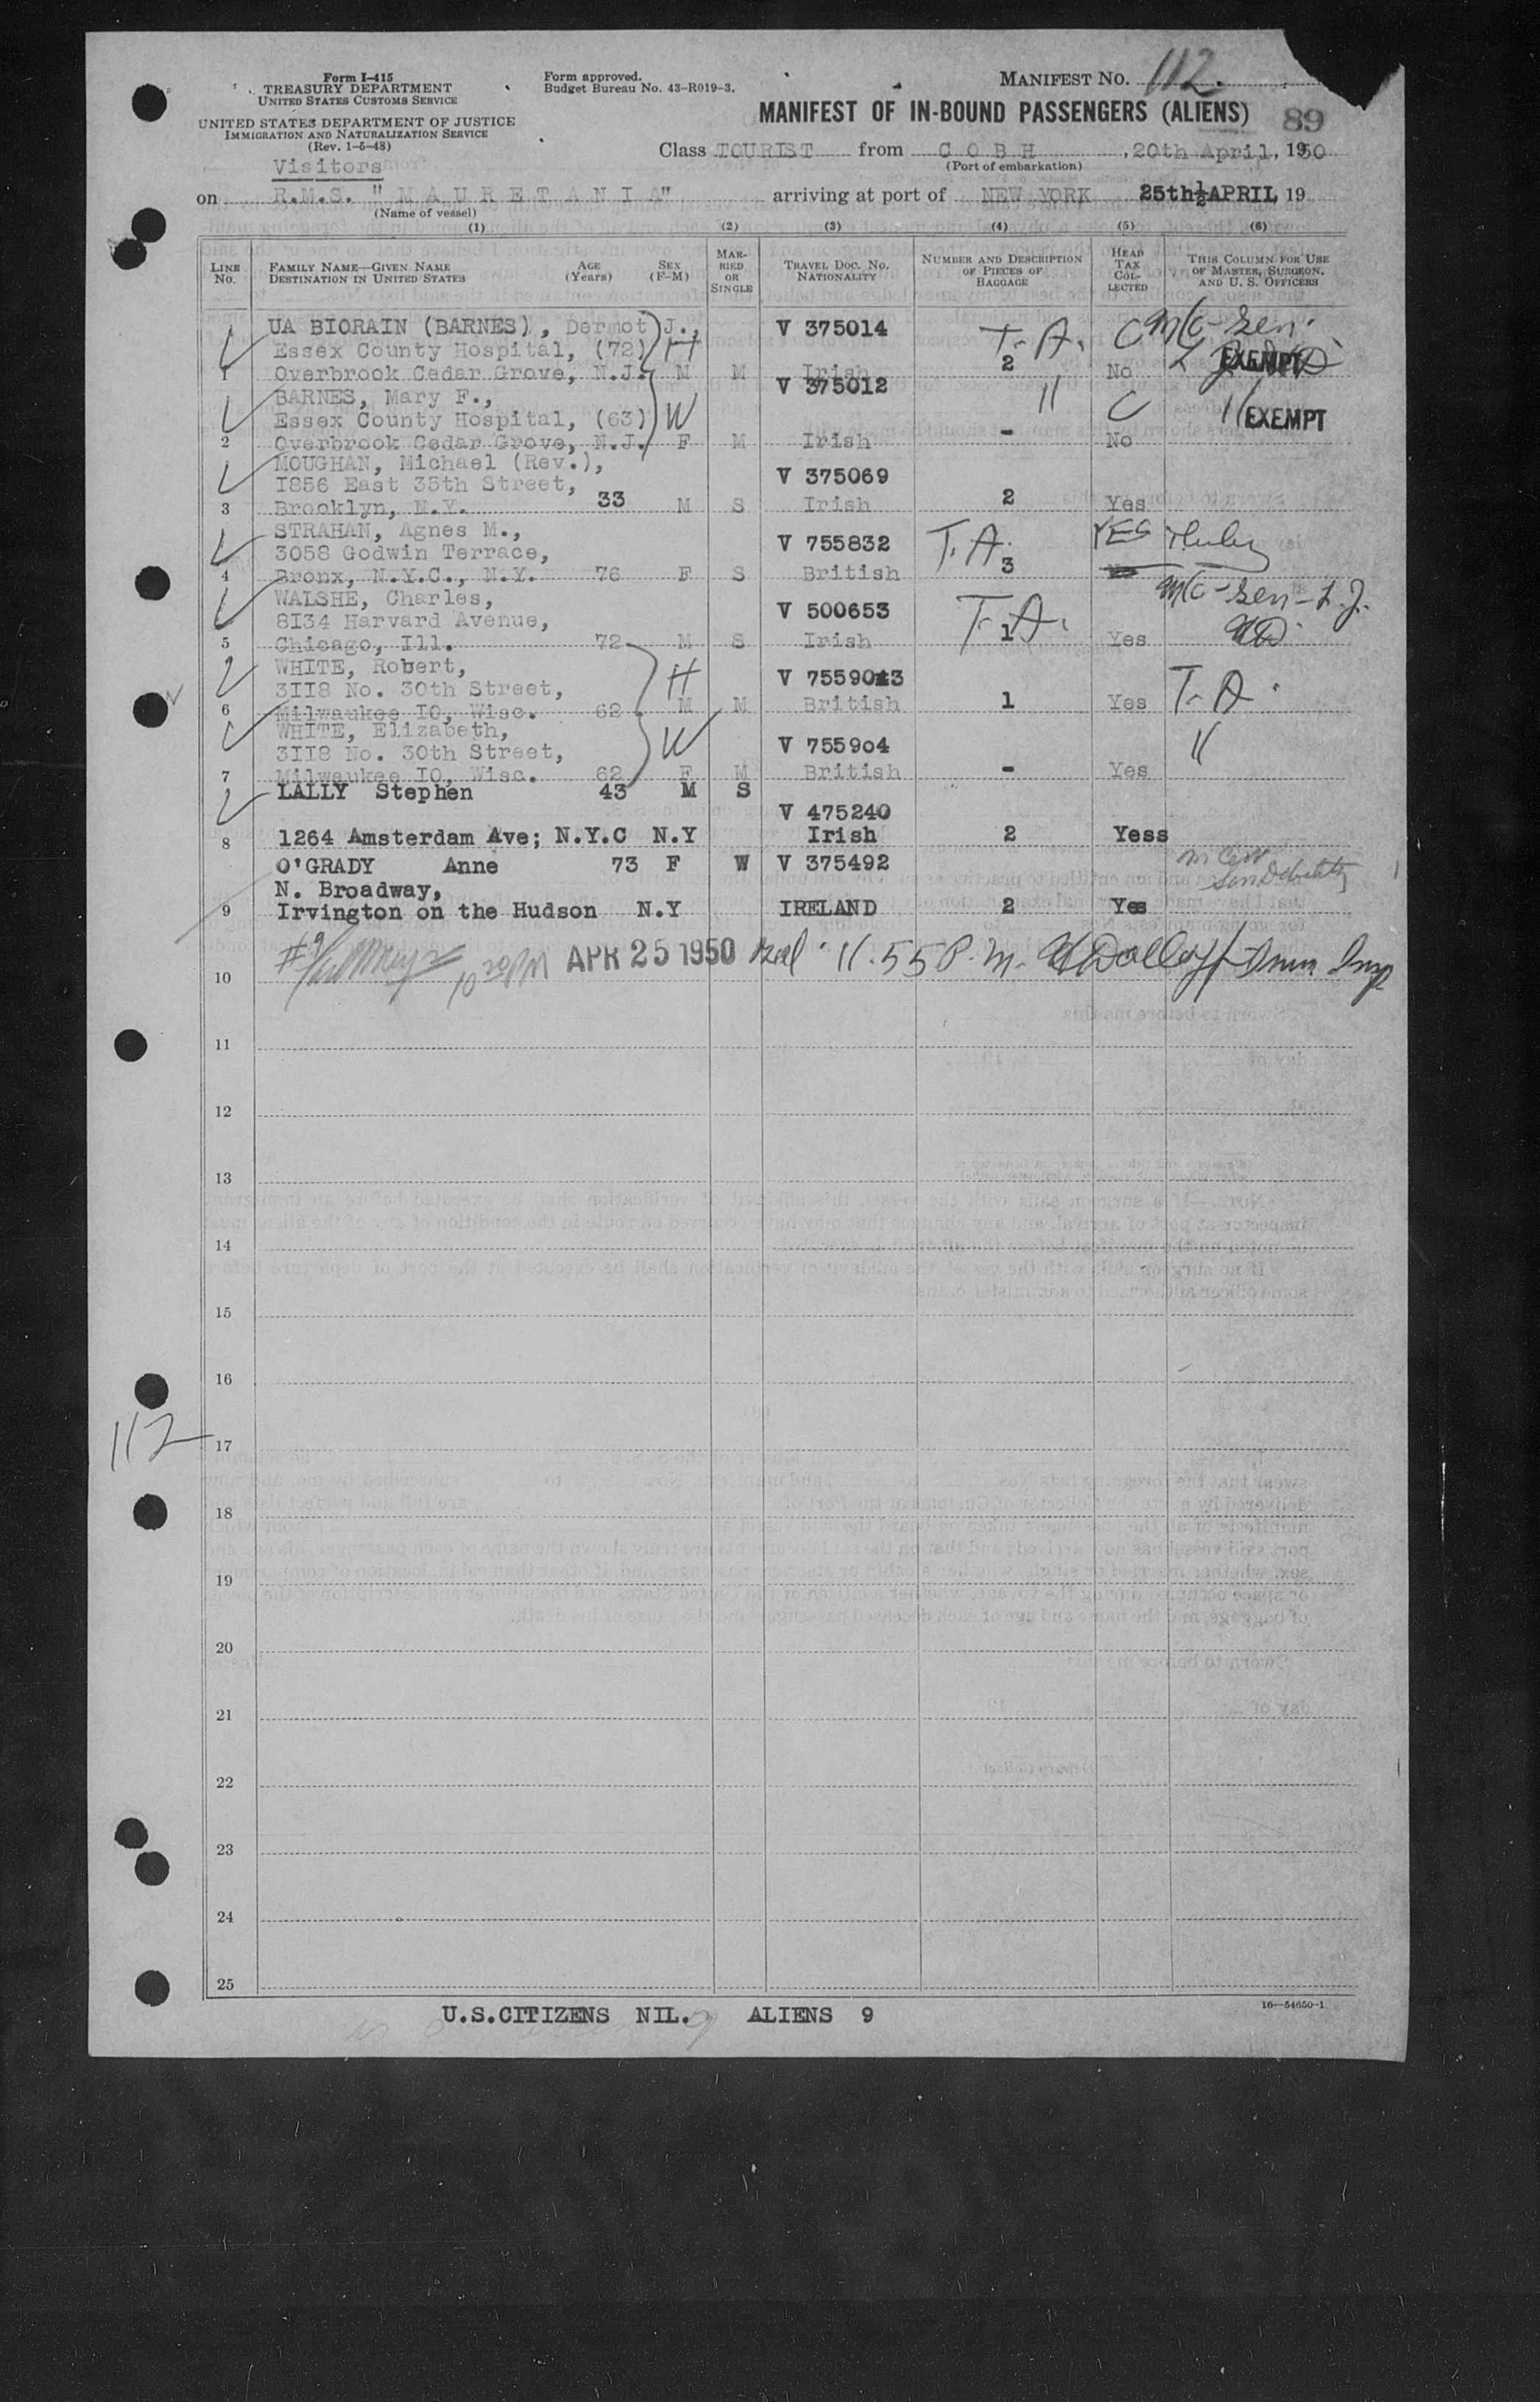 Form I-415
TREASURY DEPARTMENT
UNITED STATES CUSTOMS SERVICE
UNITED STATES DEPARTMENT OF JUSTICE
IMMIGRATION AND NATURALIZATION SERVICE
(Rev. 1-5-48)
Form approved.
Budget Bureau No. 43-R019-3.
MANIFEST NO. 112.
MANIFEST OF IN-BOUND PASSENGERS (ALIENS) 89
Class TOURIST from C O B H, 20th April, 1950
(Port of embarkation)
Visitors
on R.M.S. "M A U R E T A N I A" arriving at port of NEW YORK 25th½APRIL, 19
(Name of vessel)
(1) (2) (3) (4) (5) (6)
LINE NO. FAMILY NAME—GIVEN NAME DESTINATION IN UNITED STATES AGE (Years) SEX (F-M) MARRIED OR SINGLE TRAVEL DOC. NO. NATIONALITY NUMBER AND DESCRIPTION OF PIECES OF BAGGAGE HEAD TAX COLLECTED THIS COLUMN FOR USE OF MASTER, SURGEON, AND U. S. OFFICERS
UA BIORAIN (BARNES), Dermot J., V 375014 T.A. C M/C-Sen.
Essex County Hospital, (72) H EXEMPT
1 Overbrook Cedar Grove, N.J. M M Irish 2 No
BARNES, Mary F., V 375012
Essex County Hospital, (63) W " C " EXEMPT
2 Overbrook Cedar Grove, N.J. F M Irish - No
MOUGHAN, Michael (Rev.),
1856 East 35th Street, V 375069
3 Brooklyn, N.Y. 33 M S Irish 2 Yes
STRAHAN, Agnes M.,
3058 Godwin Terrace, V 755832 T.A. YES
4 Bronx, N.Y.C., N.Y. 76 F S British 3
WALSHE, Charles, M/C-Sen-L.J.
8134 Harvard Avenue, V 500653 T.A.
5 Chicago, Ill. 72 M S Irish 1 Yes
WHITE, Robert,
3118 No. 30th Street, H V 755903 T.A.
6 Milwaukee 10, Wisc. 62 M M British 1 Yes
WHITE, Elizabeth,
3118 No. 30th Street, W V 755904 "
7 Milwaukee 10, Wisc. 62 F M British - Yes
LALLY Stephen 43 M S
V 475240
8 1264 Amsterdam Ave; N.Y.C N.Y Irish 2 Yess
O'GRADY Anne 73 F W V 375492
N. Broadway,
9 Irvington on the Hudson N.Y IRELAND 2 Yes
#9 APR 25 1950 11.55 P.M.
10
11
12
13
14
15
16
112
17
18
19
20
21
22
23
24
25
16—54650-1
U.S.CITIZENS NIL. ALIENS 9